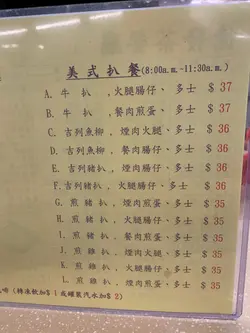 美式扒餐(8:00a.m.-11:30a.m.)
A. 牛 扒 ,火腿腸仔、多士 $ 37
B. 牛 扒 ,餐肉煎蛋、多士 $ 37
C. 吉列魚柳, 煙肉火腿、多士 $ 36
D. 吉列魚柳, 餐肉煎蛋、多士 $ 36
E. 吉列豬扒, 煙肉腸仔、多士 $ 36
F. 吉列豬扒, 火腿腸仔、多士 $ 36
G. 煎 豬 扒 , 煙肉煎蛋、多士 $ 35
H. 煎 豬 扒 , 火腿腸仔、多士 $ 35
I. 煎 豬 扒 , 餐肉煎蛋、多士 $ 35
J. 煎 雞 扒 , 煙肉火腿、多士 $ 35
K. 煎 雞 扒 , 餐肉腸仔、多士 $ 35
L. 煎 雞 扒 , 火腿煎蛋、多士 $ 35
啡 (轉凍飲加$ 1 或罐裝汽水加$ 2)